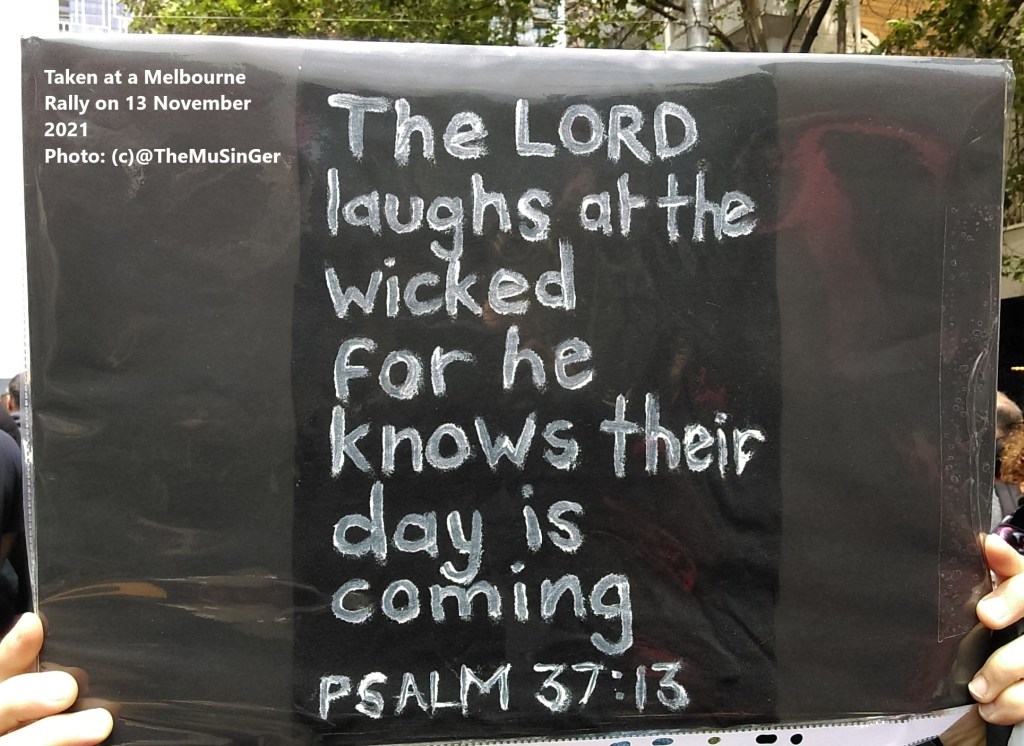 Taken at a Melbourne
Rally on 13 November
2021
Photo: (c)@TheMuSinGer
The LORD
laughs at the
wicked
for he
knows their
day is
coming
PSALM 37:13